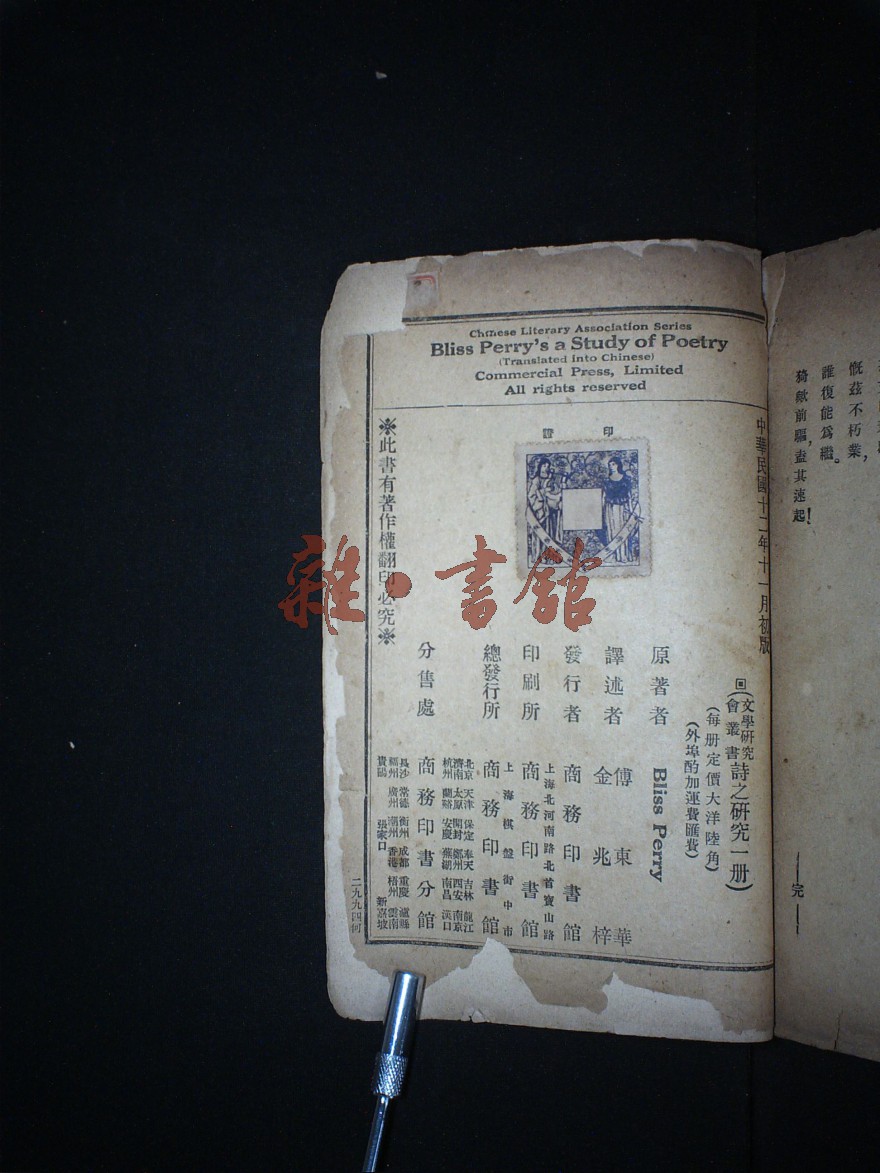 Chinese Literary Association Series
Bliss Perry's a Study of Poetry
(Translated into Chinese)
Commercial Press, Limited
All rights reserved
慨茲不朽業，
誰復能爲繼。
猗歟前驅，盍其速起！
——完——
中華民國十二年十一月初版
印證
回(文學研究會叢書詩之研究一册)
(每册定價大洋陸角)
(外埠酌加運費匯費)
原著者 Bliss Perry
譯述者 傅東華 金兆梓
發行者 商務印書館
上海北河南路北首寶山路
印刷所 商務印書館
上海棋盤街中市
總發行所 商務印書館
北京 天津 保定 奉天 吉林 龍江
濟南 太原 開封 鄭州 西安 南京
杭州 蘭谿 安慶 蕪湖 南昌 漢口
分售處 商務印書分館
長沙 常德 衡州 成都 重慶 瀘縣
福州 廣州 潮州 香港 梧州 雲南
貴陽 張家口 新嘉坡
※此書有著作權翻印必究※
二九九四何
雜·書館